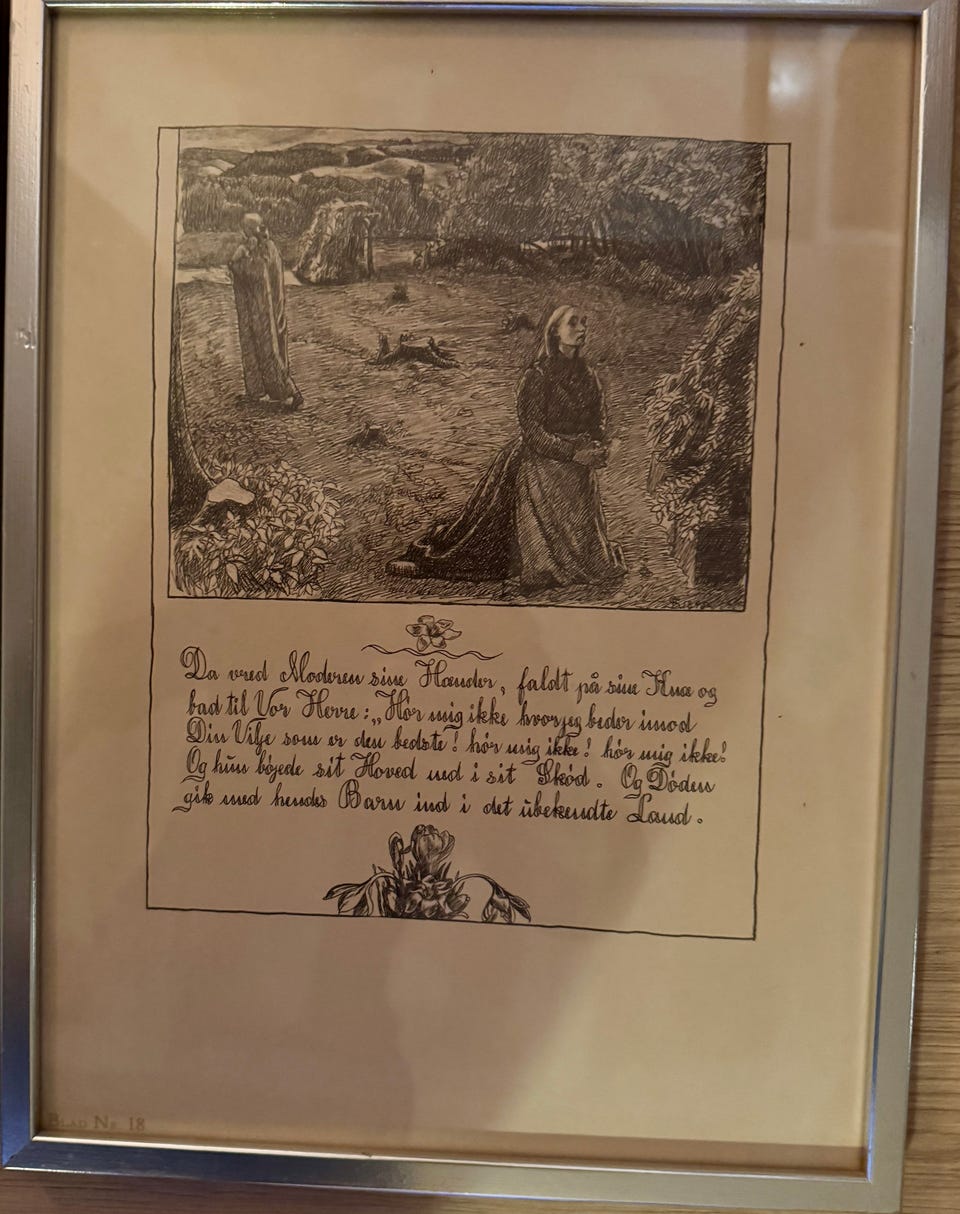 Da vred Moderen sine Hænder, faldt på sine Knæ og
bad til Vor Herre: „Hör mig ikke hvor jeg beder imod
Din Vilje som er den bedste! hör mig ikke! hör mig ikke!
Og hun böjede sit Hoved ned i sit Sköd. Og Döden
gik med hendes Barn ind i det ubekendte Land.
Blad Nr. 18